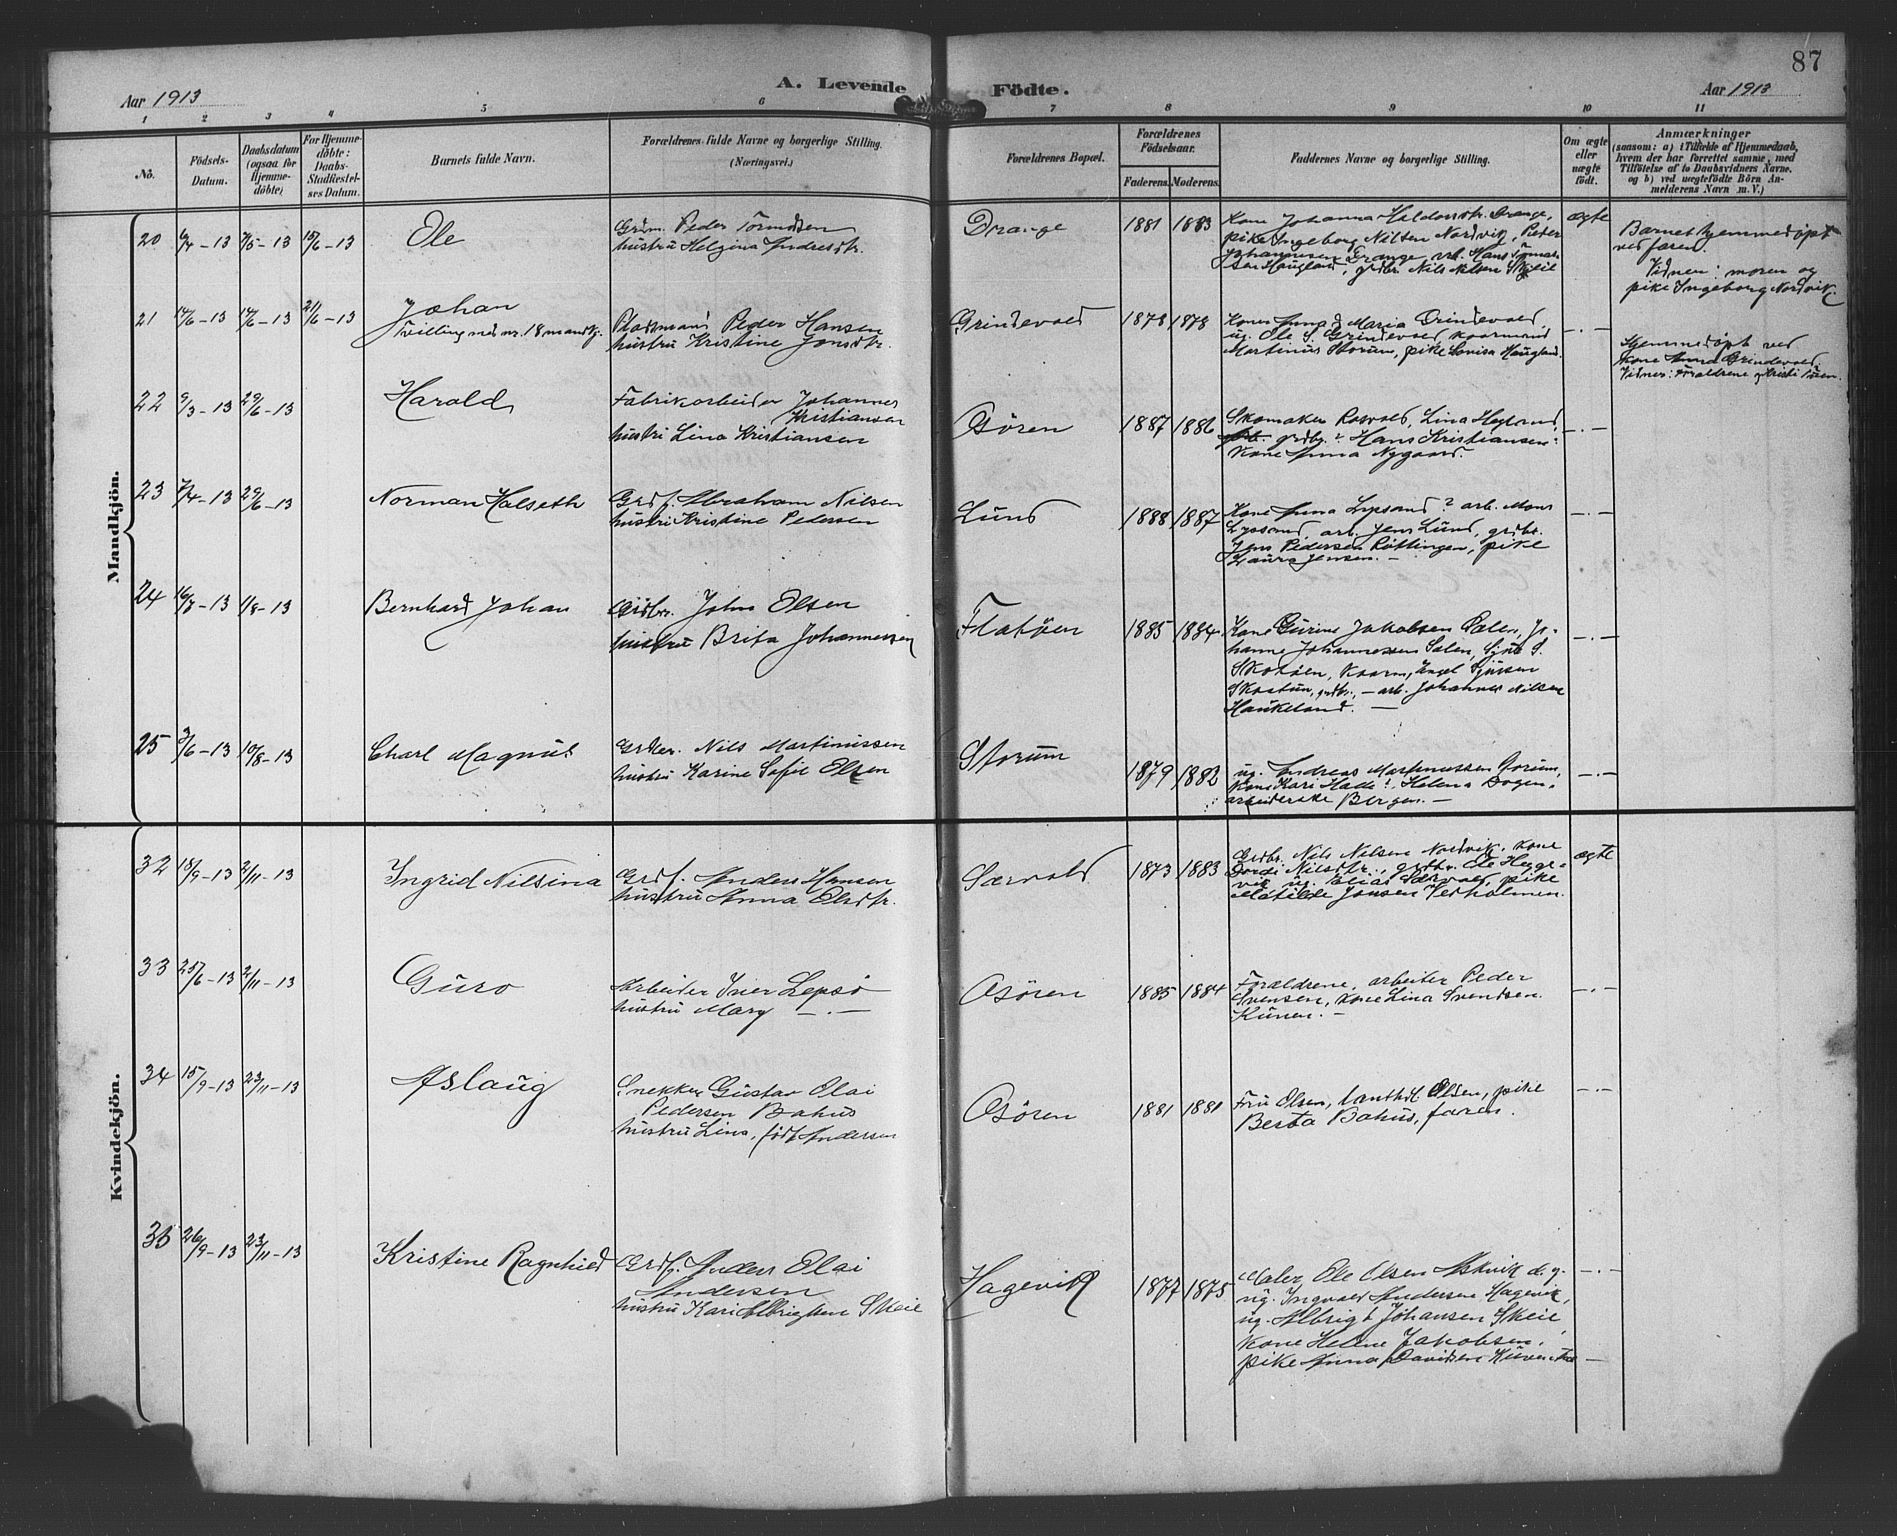 87
Aar 1913
A. Levende
Födte.
Aar 1913
1 2 3 4 5 6 7 8 9 10 11
No.
Födsels-
Datum.
Daabsdatum
(ogsaa for
Hjemme-
döbte)
For Hjemme-
döbte:
Daabs-
Stadfæstel-
ses Datum.
Barnets fulde Navn.
Forældrenes fulde Navne og borgerlige Stilling.
(Næringsvei.)
Forældrenes Bopæl.
Forældrenes
Födselsaar.
Faderens. Moderens.
Faddernes Navne og borgerlige Stilling.
Om ægte
eller
uægte
födt.
Anmærkninger
(saasom: a) i Tilfælde af Hjemmedaab,
hvem der har forrettet samme, med
Tilföielse af to Daabsvidners Navne.
og b) ved uægtefödte Börn An-
melderens Navn m. V.)
Mandkjön.
20 6/4-13 4/5-13 15/6-13 Ole
Grdm. Peder Tormodsen
hustru Helgina Andresdtr.
Drange 1881 1883
Kone Johanna Haldorsdtr. Drange,
pike Ingeborg Nilsen Nordvik, Peder
Johannessen Drange, Hans
Haugland, grdbr. Nils Nilsen Skeie
ægte
Barnet hjemmedøpt
ved faren.
Vidner: moren og
pike Ingeborg Nordvik
21 14/6-13 14/6-13 21/6-13 Johan
Tvilling med nr. 18 mandkj.
Pladsmand Peder Hansen
hustru Kristine Jonsdtr.
Grindevold 1878 1878
Kone Anna Maria Grindevold,
ug. Ole S. Grindevold, kaarmand
Martinus Storum, pike Lovisa Haugland.
-.-
Hjemmedøpt ved
kone Anna Grindevold
Vidner: Forældrene
22 9/3-13 29/6-13 Harald
Fabrikarbeider Johannes
Kristiansen
hustru Lina Kristiansen
Osören 1887 1886
Skomaker Lina
grdbr. ? Hans Kristiansen
kone Anna Nygaard.
-.-
23 7/4-13 29/6-13 Norman Halseth
Grdf. Abraham Nilsen
hustru Kristine Pedersen
Lund 1888 1887
Kone Anna Lysand ? arb. Mons
Lyssand, arb. Jens Lund, grdbr.
Jens Pedersen Röttingen, pike
Laura Jensen. -
-.-
24 1/8-13 Bernhard Johan
Grdbr. John Olsen
hustru Brita Johannessen
Flatöen 1885 1884
Kone Gurine Jakobsen Salen, Jo-
hanne Johannessen Salen,
Skotöen, kaarm.
grdbr., - arb. Johannes Nilsen
Haukeland. -
-.-
25 3/6-13 10/8-13 Charl Magnus
Grdbr. Nils Martinussen
hustru Karine Sofie Olsen
Storum 1879 1882
ug. Andreas Martinussen Storum,
kone Kari ?, Helena
arbeiderske Bergen. -
-.-
Kvindekjön.
32 18/9-13 2/11-13 Ingrid Nilsina
Grdf. Anders Hansen
hustru Anna Olsdtr.
Særvold 1873 1883
Grdbr. Nils Nilsen Nordvik, kone
Dordi Nilsdtr., grdbr. Ole Hegge-
vik, ug. Elias Særvold, pike
Matilde Jonsen Vedholmen.
ægte
33 25/6-13 2/11-13 Guro
Arbeider Iver Lepsö
hustru Mary -.-
Osören 1885 1884
Forældrene, arbeiter Peder
Svensen, kone Lina Svendsen
Kunen. -
-.-
34 15/9-13 23/11-13 Aslaug
Snekker Gustav Olai
Pedersen Bahus
hustru Lina, född Andersen
Osören 1881 1881
Fru Olsen, landh. Olsen, pike
Berta Bahus, faren.
-.-
35 26/9-13 23/11-13 Kristine Ragnhild
Grdf. Anders Olai
Andersen
hustru Kari Albrigtsen Skeie
Hagevik 1877 1875
Maler Ole Olsen Askvik d.y.
ug. Ingvald Andersen Hagevik,
ug. Albrigt Johansen Skeie
kone Helene Jakobsen,
pike Anna Davidsen
-.-